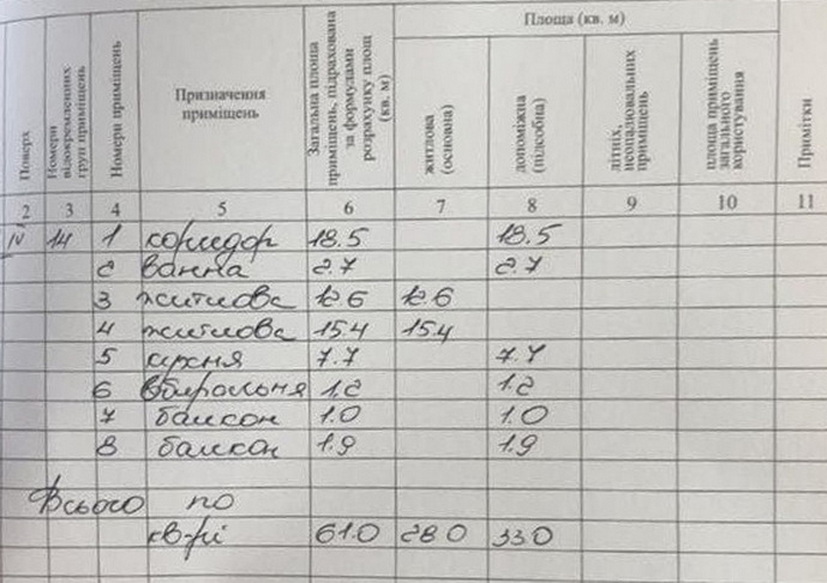 Площа (кв. м)
Поверх
Номери відокремлених груп приміщень
Номери приміщень
Призначення приміщень
Загальна площа приміщень, підрахована за формулами розрахунку площ (кв. м)
житлова (основна)
допоміжна (підсобна)
літніх, неопалювальних приміщень
площа приміщень загального користування
Примітки
2 3 4 5 6 7 8 9 10 11
IV 14 1 коридор 18.5 18.5
2 ванна 2.7 2.7
3 житлова 12.6 12.6
4 житлова 15.4 15.4
5 кухня 7.7 7.7
6 вбиральня 1.2 1.2
7 балкон 1.0 1.0
8 балкон 1.9 1.9
Всього по
кв-рі 61.0 28.0 33.0